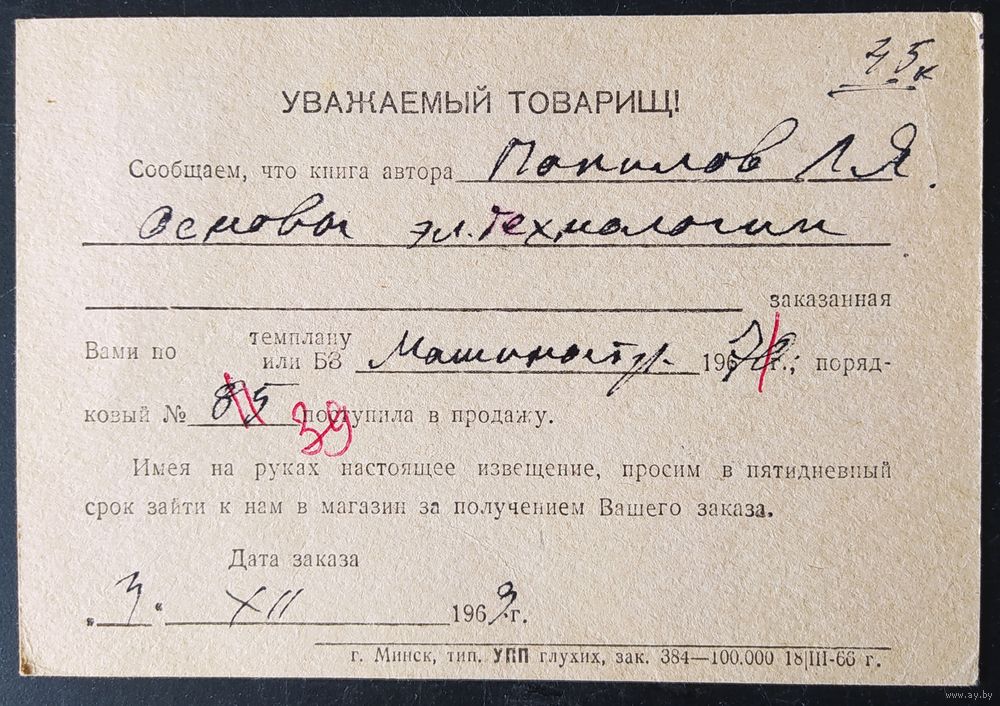 75к
УВАЖАЕМЫЙ ТОВАРИЩ!
Сообщаем, что книга автора Попилов Л.Я.
Основы эл.технологии
заказанная
Вами по темплану или БЗ Машиностр. 1970г.; поряд-
ковый № 85 39 поступила в продажу.
Имея на руках настоящее извещение, просим в пятидневный
срок зайти к нам в магазин за получением Вашего заказа.
Дата заказа
„3“ XII 1969г.
г. Минск, тип. УПП глухих, зак. 384—100.000 18|III-66 г.
www.ay.by